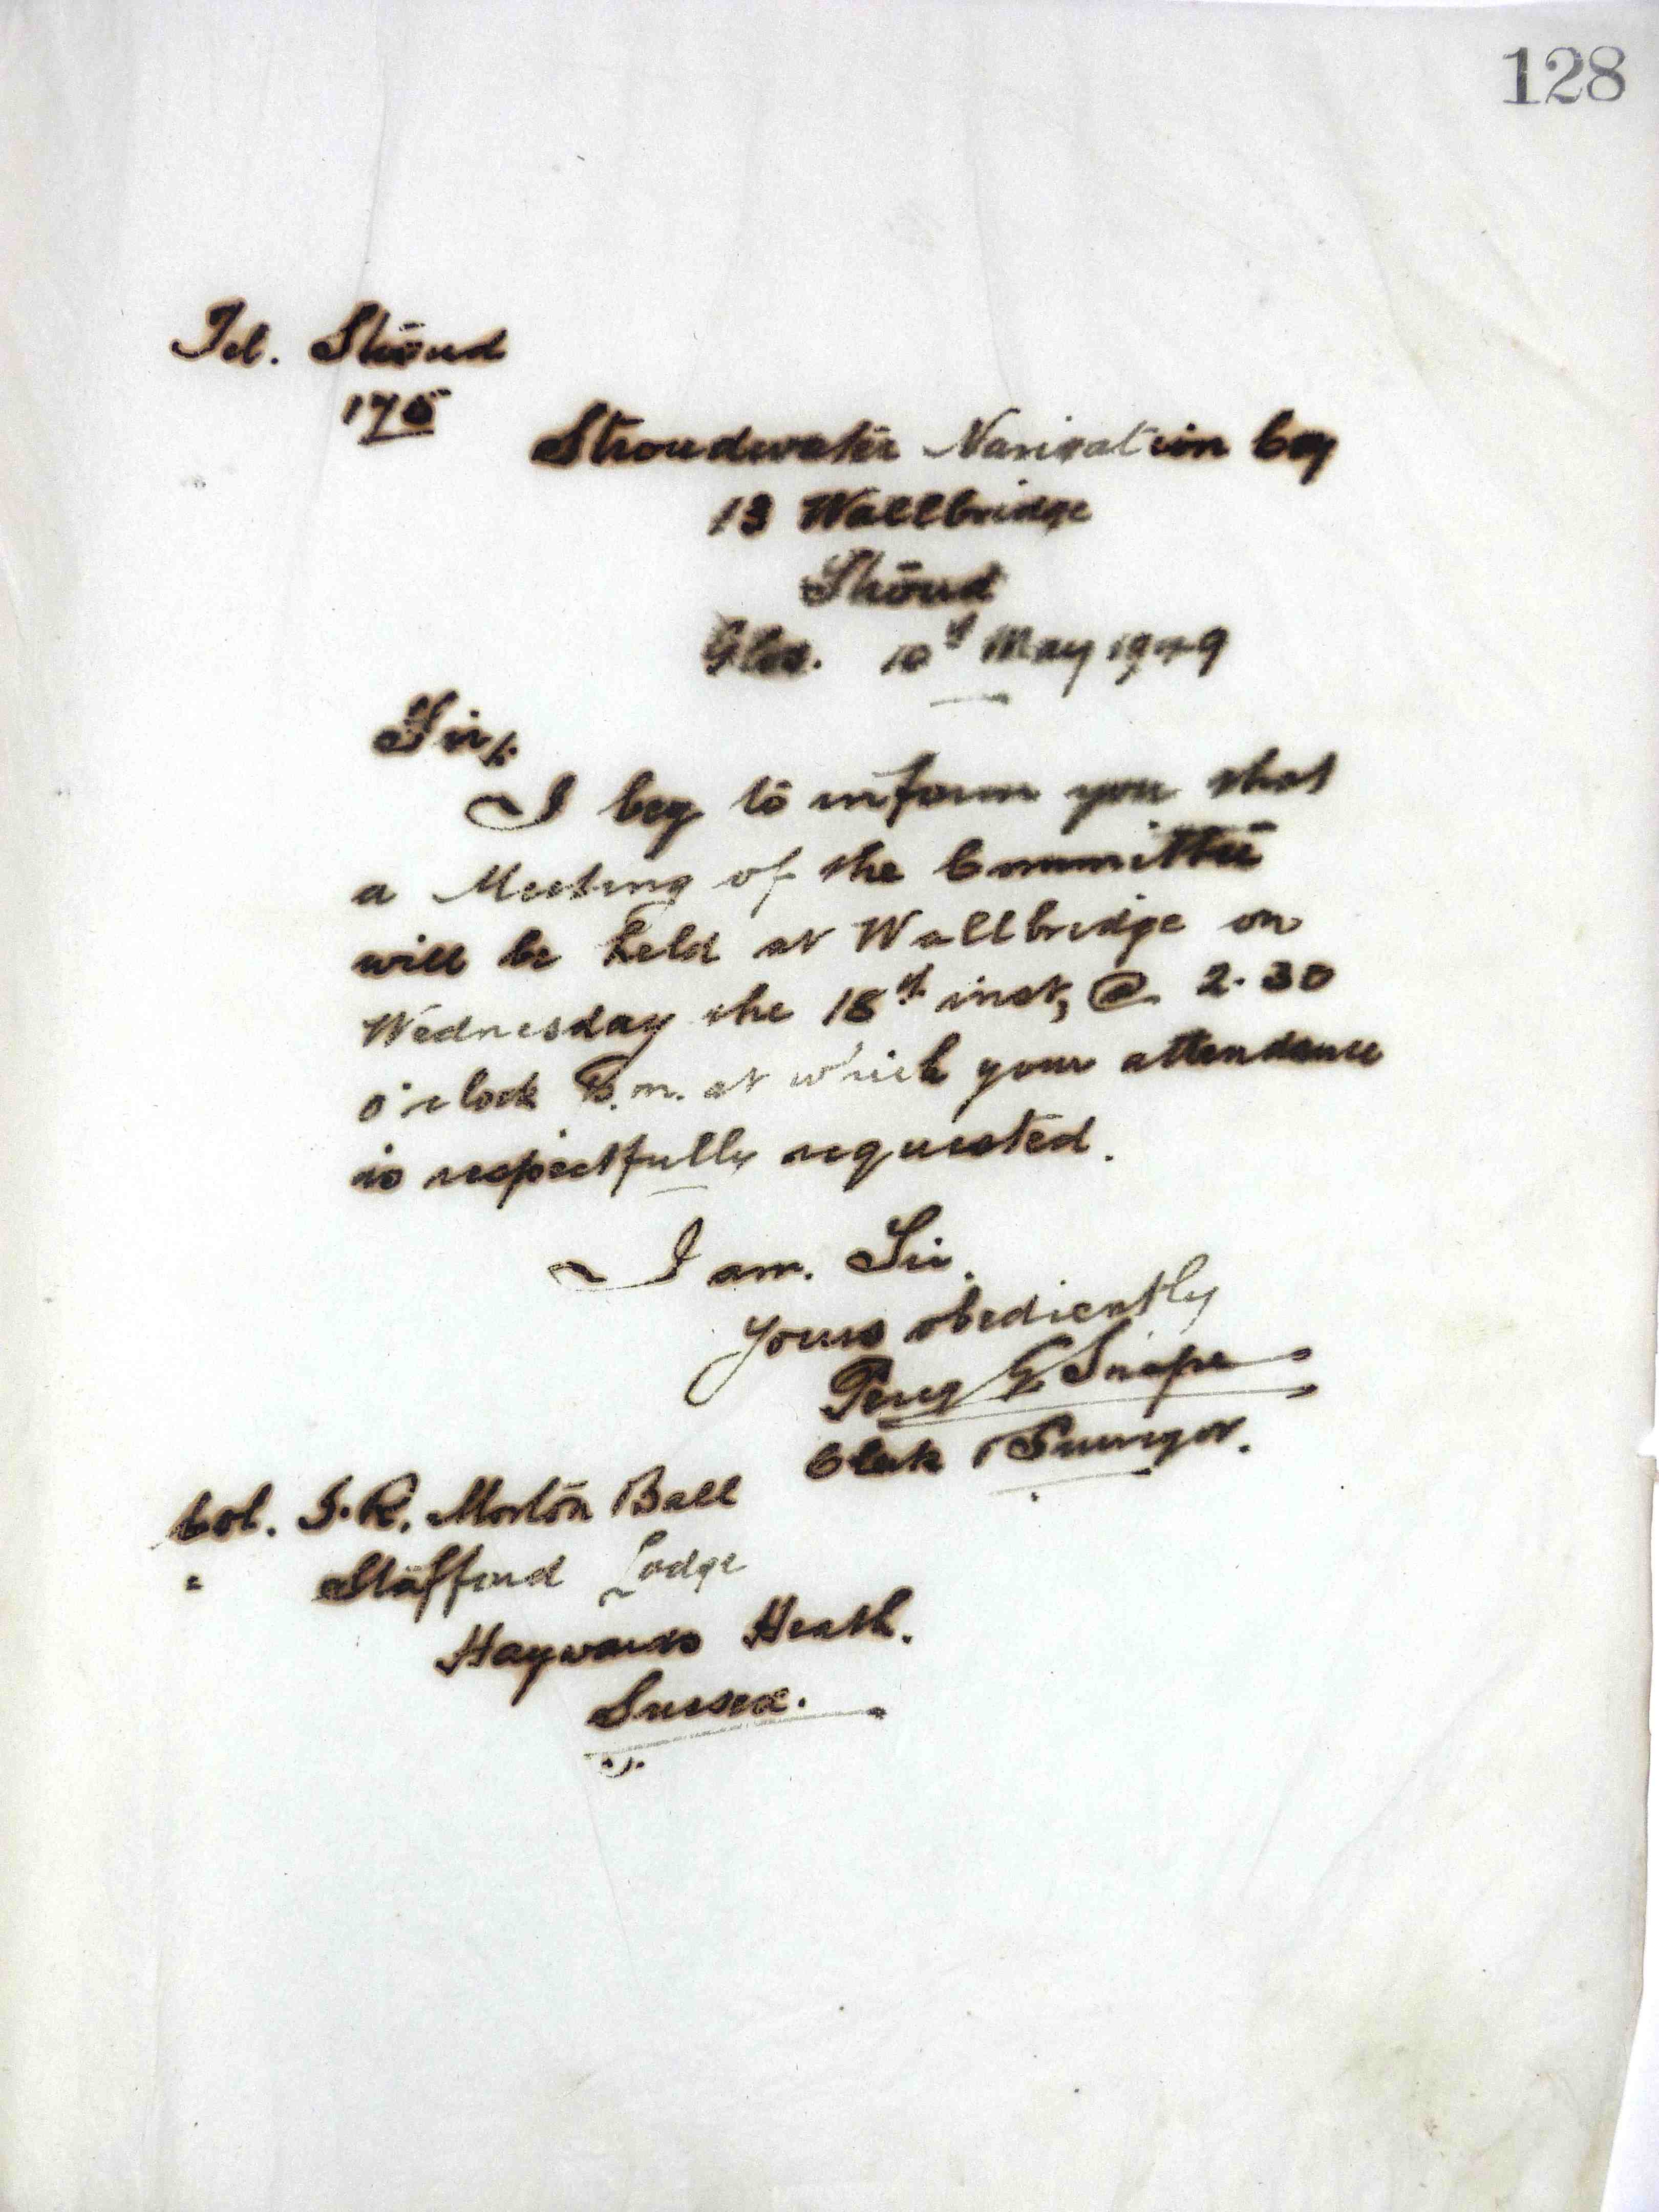 128
Tel. Stroud
175
Stroudwater Navigation Coy
13 Wallbridge
Stroud
Glos. 10th May 1949
Sir,
I beg to inform you that
a Meeting of the Committee
will be held at Wallbridge on
Wednesday the 18th inst, @ 2.30
o'clock P.m. at which your attendance
is respectfully requested.
I am. Sir.
Yours obediently
Percy G Snape
Clerk & Surveyor.
Col. S.R. Morton Ball
Stafford Lodge
Haywards Heath.
Sussex.